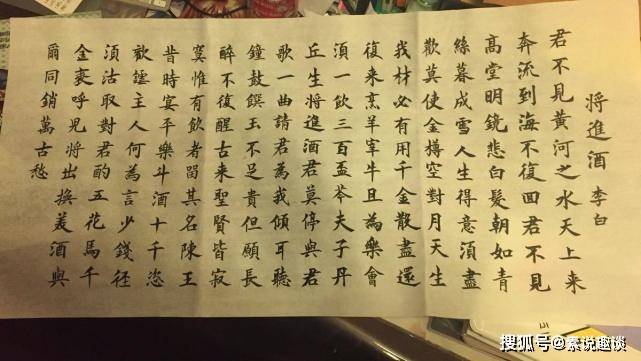 将進酒 李白
君不見黃河之水天上来
奔流到海不復回君不見
高堂明鏡悲白髮朝如青
絲暮成雪人生得意須盡
歡莫使金樽空對月天生
我材必有用千金散盡還
復来烹羊宰牛且為樂會
須一飲三百盃岑夫子丹
丘生将進酒君莫停與君
歌一曲請君為我傾耳聽
鐘鼓饌玉不足貴但願長
醉不復醒古来聖賢皆寂
寞惟有飲者留其名陳王
昔時宴平樂斗酒十千恣
歡謔主人何為言少錢徑
須沽取對君酌五花馬千
金裘呼兒将出換美酒與
爾同銷萬古愁
搜狐号@素说趣谈